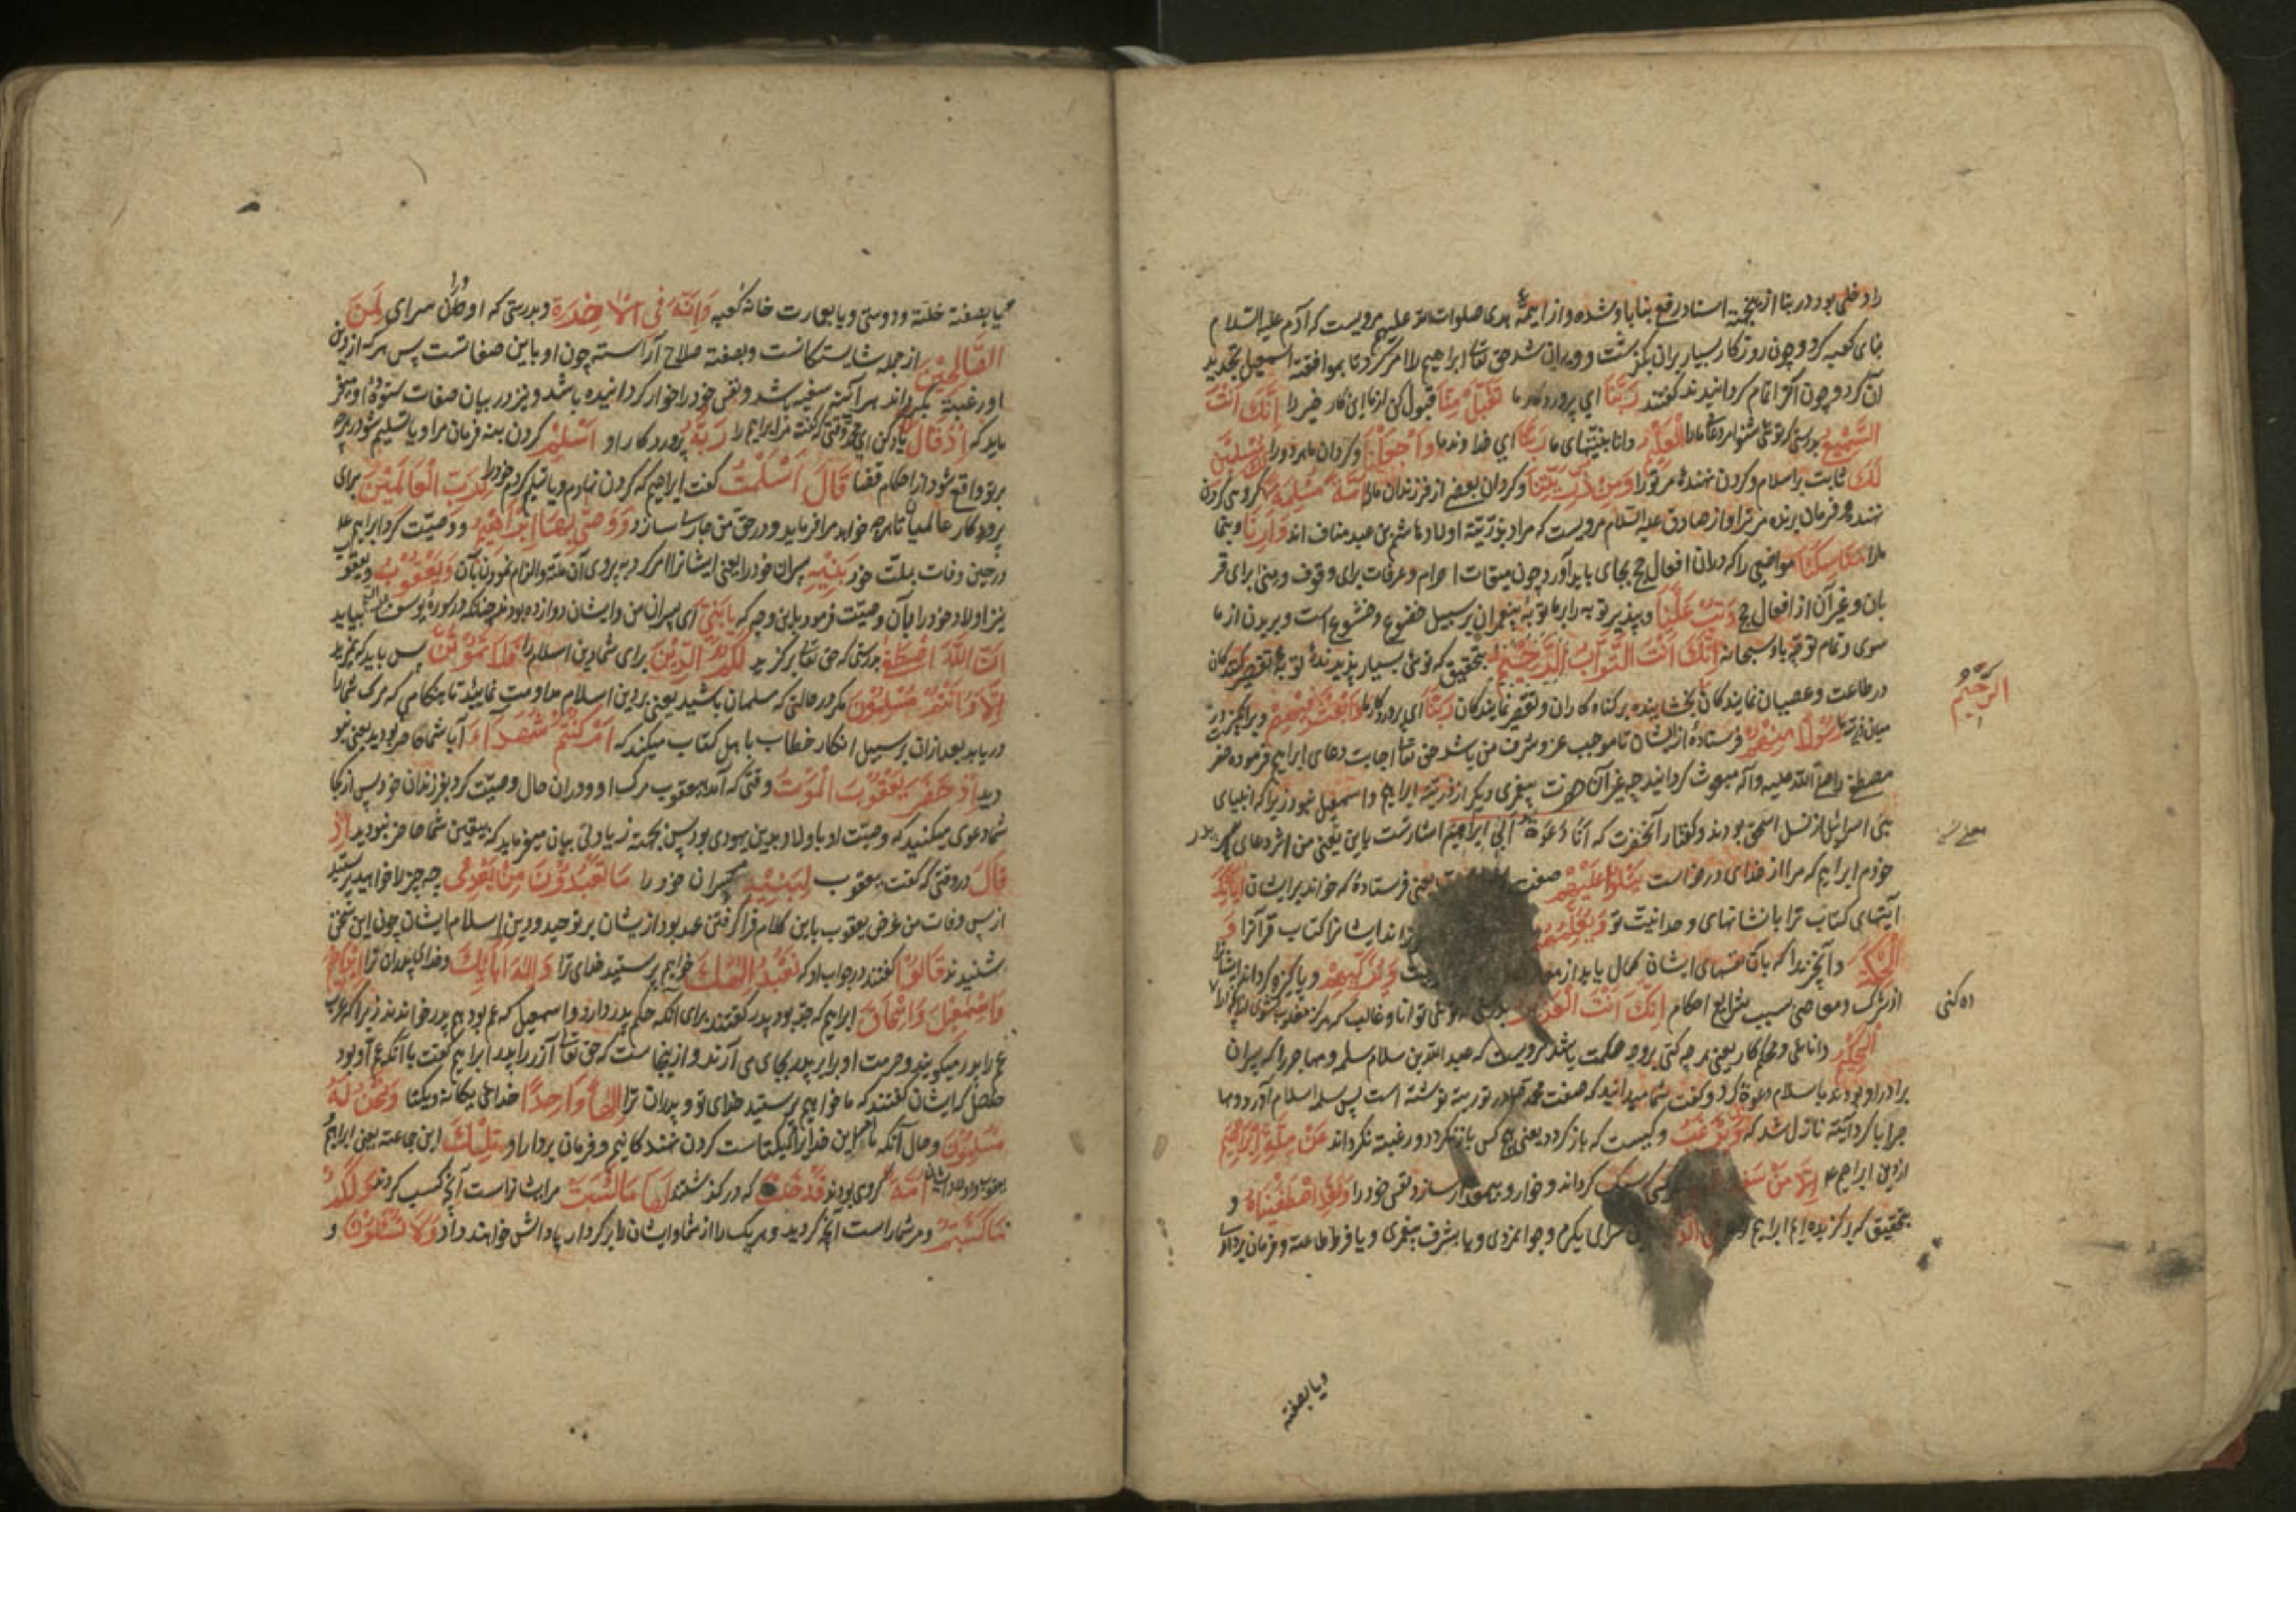 را دخلی بود در بنا ازینجهته اسناد رفع بنا باو شده و از ایمهٔ هدی صلوات الله علیهم مرویست که آدم علیه السلام
بنای کعبه کرد و چون روزکار بسیار بران بکذشت و ویران شد حق تعا ابراهیم را امر کرد تا بموافقة اسمعیل تجدید
آن کرد و چون آنرا تمام کردانیدند کفتند رَبَّنَا ای پروردکار ما تَقَبَّلْ مِنَّا قبول کن از ما این کار خیر را اِنَّكَ اَنْتَ
السَّمِیعُ بدرستی که توئی شنوا مر دعای ما را الْعَلِیمُ دانا بنیتهای ما رَبَّنَا ای خداوند ما وَاجْعَلْنَا و کردان ما هر دو را مُسْلِمَیْنِ
لَكَ ثابت بر اسلام و کردن نهنده مر تو را وَمِنْ ذُرِّیَّتِنَا و کردان بعضی از فرزندان ما را اُمَّةً مُسْلِمَةً کروهی کردن
نهنده و فرمان برنده مر ترا و از صادق علیه السلام مرویست که مراد بذریّة اولاد هاشم بن عبد مناف اند وَاَرِنَا و بنما
ما را مَنَاسِكَنَا مواضعی را که دران افعال حج بجای باید آورد چون میقات احرام و عرفات برای وقوف و منی برای قر
بان و غیر آن از افعال حج وَتُبْ عَلَیْنَا و بپذیر توبه را بر ما توبهٔ پیغمبران بر سبیل خضوع و خشوع است و بریدن از ما
سوی و تمام توجّه باو سبحانه اِنَّكَ اَنْتَ التَّوَّابُ الرَّحِیمُ بتحقیق که توئی بسیار پذیرندهٔ توبهٔ تقصیر کنندکان
در طاعت و عصیان نمایندکان بخشاینده بر کناه کاران و تقصیر نمایندکان رَبَّنَا ای پروردکار ما وَابْعَثْ فِیهِمْ و برانکیز در
میان ذریّه ما رَسُولًا مِنْهُمْ فرستادهٔ از ایشان تا موجب عز و شرف من باشد حق تعا اجابت دعای ابراهیم فرموده حضر
مصطفی را صلی الله علیه و آله مبعوث کردانید چه غیر آن حضرت پیغمبری دیکر از ذریّة ابراهیم و اسمعیل نبود زیرا که انبیای
بنی اسرائیل از نسل اسحق بودند و کفتار آنحضرت که اَنَا دَعْوَةُ اَبِی اِبْرَاهِیمَ اشارتست باین یعنی من اثر دعای پدر
خودم ابراهیم که مرا از خدای درخواست یَتْلُوا عَلَیْهِمْ صفت یعنی فرستادهٔ که خواند بر ایشان آیَاتِكَ
آیتهای کتاب ترا با نشانهای وحدانیت تو وَیُعَلِّمُهُمُ داند ایشانرا کتاب قرآنرا وَ
الْحِکْمَةَ و آنچیز را که بآن نفسهای ایشان کمال یابد از وَیُزَکِّیهِمْ و پاکیزه کرداند ایشانرا
از شرک و معاصی بسبب شرایع احکام اِنَّكَ اَنْتَ الْعَزِیزُ توانا و غالب که هرکز مغلوب
الْحَکِیمُ دانائی و محکم کار یعنی هر چه کنی بروجه حکمت باشد مرویست که عبد الله بن سلام سلمه و مهاجر را که پسران
برادر او بودند باسلام دعوة کرد و کفت شما میدانید که صفت محمد در توریه نوشته است پس سلمه اسلام آورد و مها
جر ابا کرد آیة نازل شد که وَمَنْ یَرْغَبُ و کیست که باز کردد یعنی هیچ کس باز نکردد و رغبة نکرداند عَنْ مِلَّةِ اِبْرَاهِیمَ
از دین ابراهیم ع اِلَّا مَنْ سَفِهَ کرداند و خوار و بیمقدار سازد نفس خود را وَلَقَدِ اصْطَفَیْنَاهُ و
بتحقیق که برکزیده ایم ابراهیم را سرای بکرم و جوانمردی و یا بشرف پیغمبری و یا فرط طاعة و فرمان برداری
الرَّحِیمُ
ده کنی
و یا بصفة
و یا بصفة خلّة و دوستی و یا بعمارت خانه کعبه وَاِنَّهُ فِی الْاٰخِرَةِ و بدرستی که او دران سرای لَمِنَ
الصَّالِحِینَ از جمله شایستکانست و بصفة صلاح آراسته چون او باین صفاتست پس هر که از دین
او رغبة بکرداند هر آینه سفیه باشد و نفس خود را خوار کردانیده باشد و نیز در بیان صفات ستودهٔ او میفر
ماید که اِذْ قَالَ یاد کن ای محمد وقتی کفت مر ابراهیم را رَبُّهُ پروردکار او اَسْلِمْ کردن بنه فرمان مرا و یا تسلیم شو در هرچه
بر تو واقع شود از احکام قضا قَالَ اَسْلَمْتُ کفت ابراهیم که کردن نهادم و یا تسلیم کردم خود را لِرَبِّ الْعَالَمِینَ برای
پروردکار عالمیان تا هر چه خواهد مرا فرماید و در حق من جاری سازد وَوَصّٰی بِهَا اِبْرَاهِیمُ و وصیّت کرد ابراهیم ع
در حین وفات بملت خود بَنِیهِ پسران خود را یعنی ایشانرا امر کرد به پیروی آن ملة و الزام نمودن بآن وَیَعْقُوبُ و یعقوب
نیز اولاد خود را بآن وصیّت فرمود باین وجه که یَا بَنِیَّ ای پسران من و ایشان دوازده بودند چنانکه در سورهٔ یوسف بیاید
اِنَّ اللّٰهَ اصْطَفٰی بدرستی که حق تعا برکزید لَکُمُ الدِّینَ برای شما دین اسلام را فَلَا تَمُوتُنَّ پس باید که نمیرید
اِلَّا وَاَنْتُمْ مُسْلِمُونَ مکر در حالتی که مسلمان باشید یعنی بر دین اسلام مداومت نمائید تا هنکامی که مرک شما را
دریابد بعد ازان بر سبیل انکار خطاب باهل کتاب میکند که اَمْ کُنْتُمْ شُهَدَاءَ آیا شما حاضر بودید یعنی نبو
دید اِذْ حَضَرَ یَعْقُوبَ الْمَوْتُ وقتی که آمد بیعقوب مرک او و دران حال وصیّت کرد بفرزندان خود پس از کجا
شما دعوی میکنید که وصیّت او باولاد بدین یهودی بود پس بجهته زیادتی بیان میفرماید که بیقین شما حاضر نبودید اِذْ
قَالَ در وقتی که کفت یعقوب لِبَنِیهِ پسران خود را مَا تَعْبُدُونَ مِنْ بَعْدِی چه چیز را خواهید پرستید
از پس وفات من غرض یعقوب باین کلام فرا کرفتن عهد بود از یشان بر توحید و دین اسلام ایشان چون این سخن
شنیدند قَالُوا کفتند در جواب او که نَعْبُدُ اِلٰهَكَ خواهیم پرستید خدای ترا وَاِلٰهَ اٰبَائِكَ و خدای پدران ترا اِبْرَاهِیمَ
وَاِسْمٰعِیلَ وَاِسْحَاقَ ابراهیم که جد بود پدر کفتند برای آنکه حکم پدر دارد و اسمعیل که عم بود هم پدر خواندند زیرا که عرب
عم را پدر میکویند و حرمت او برابر پدر بجای می آرند و از ینجاست که حق تعا آزر را پدر ابراهیم کفت با آنکه عم او بود
حاصل که ایشان کفتند که ما خواهیم پرستید خدای تو و پدران ترا اِلٰهًا وَاحِدًا خدای یکانه و یکتا وَنَحْنُ لَهُ
مُسْلِمُونَ و حال آنکه ما این خدای یکتا راست کردن نهندکانیم و فرمان بردار او تِلْكَ این جماعة یعنی ابراهیم
یعقوب و اولاد ایشان اُمَّةٌ کروهی بودند قَدْ خَلَتْ که در کذشتند لَهَا مَا کَسَبَتْ مر ایشانراست آنچه کسب کردند وَلَکُمْ
مَا کَسَبْتُمْ و مر شماراست آنچه کردید و هر یک را از شما و ایشان بر کردار پاداش خواهند داد وَلَا تُسْئَلُونَ و